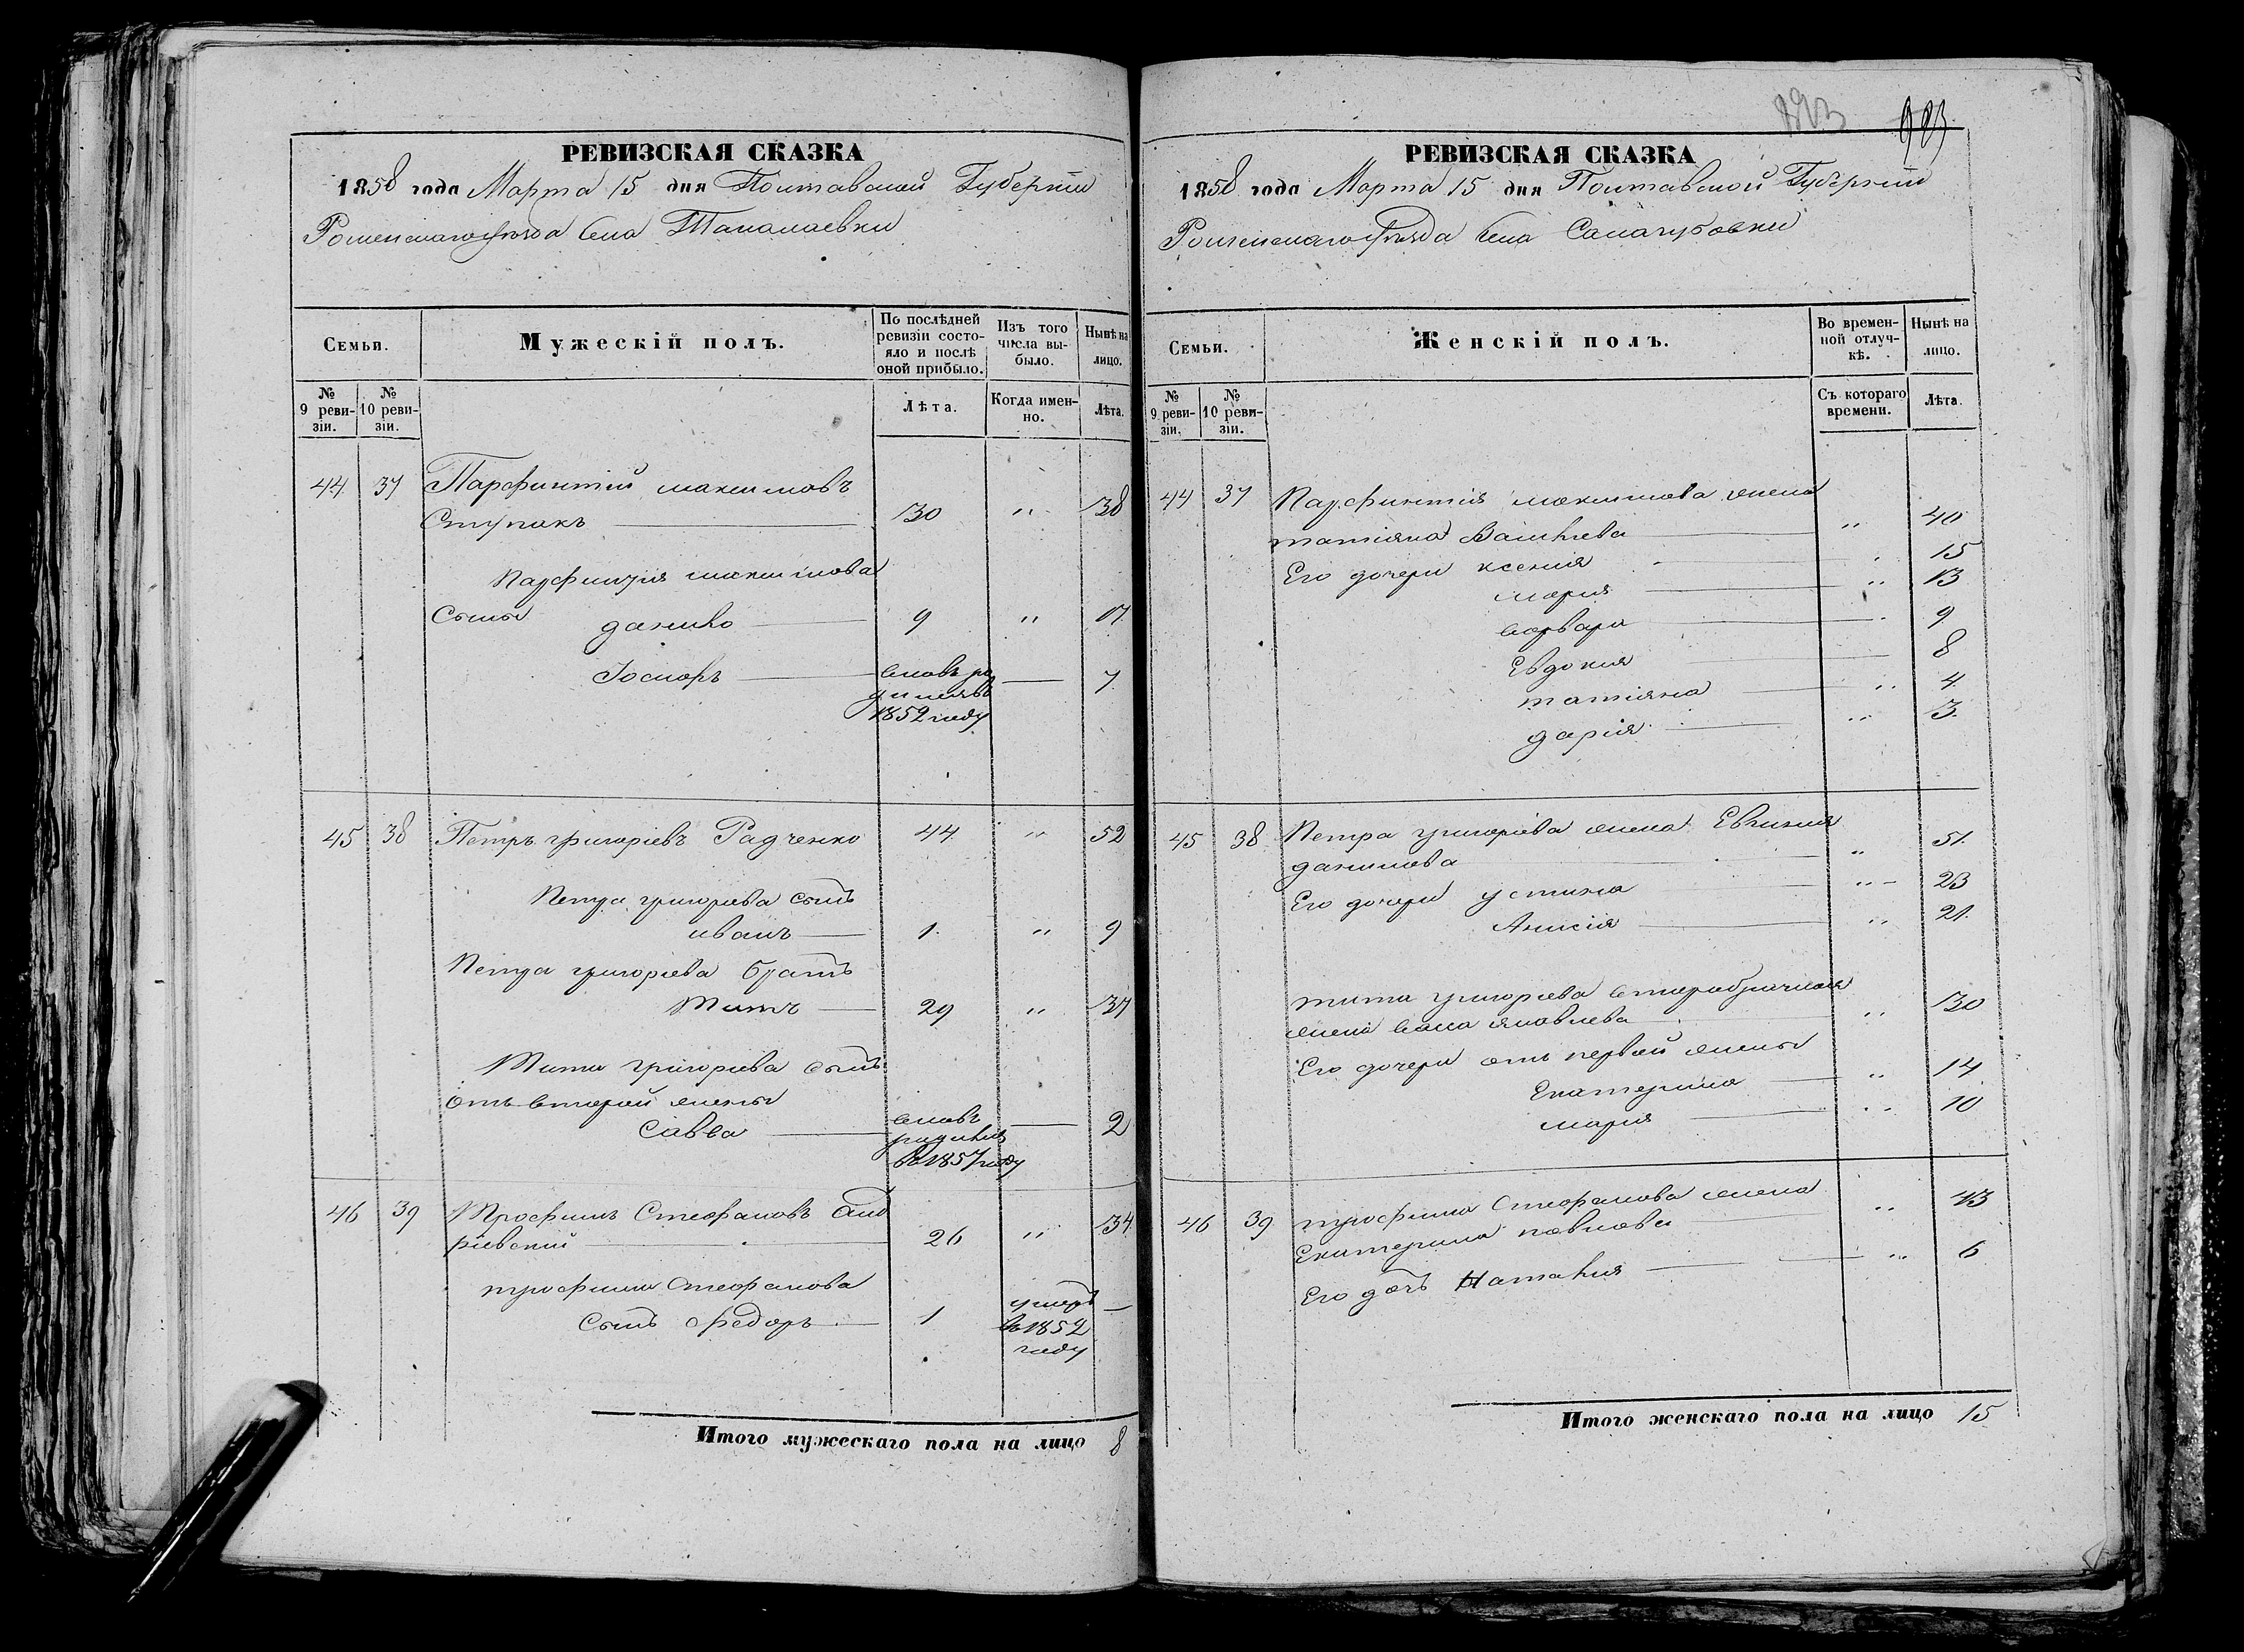 893 983
РЕВИЗСКАЯ СКАЗКА
1858 года Марта 15 дня Полтавской Губерніи
Роменскаго уѣзда Села Талалаевки
Семьи.
Мужескій полъ.
По послѣдней ревизіи состояло и послѣ оной прибыло.
Изъ того числа выбыло.
Нынѣ на лицо.
№ 9 ревизіи.
№ 10 ревизіи.
Лѣта.
Когда именно.
Лѣта.
44 37 Парфинтій максимовъ
Ступакъ 30 " 38
Парфинтія максимова
Сыны данило 9 " 17
Іосифъ вновь ро 7
дился въ
1852 году
45 38 Петръ григоріевъ Радченко 44 " 52
Петра григоріева сынъ
иванъ 1 " 9
Петра григоріева братъ
Титъ 29 " 37
Тита григоріева сынъ
отъ второй жены
Савва вновь 2
родился
въ 1857 году
46 39 Трофимъ Стефановъ
ріевскій 26 " 34
трофима Стефанова
сынъ федоръ 1 умеръ
въ 1852
году
Итого мужескаго пола на лицо 8
РЕВИЗСКАЯ СКАЗКА
1858 года Марта 15 дня Полтавской Губерніи
Роменскаго уѣзда Села
Семьи.
Женскій полъ.
Во временной отлучкѣ.
Нынѣ на лицо.
№ 9 ревизіи.
№ 10 ревизіи.
Съ котораго времени.
Лѣта.
44 37 Парфинтія максимова жена
татіяна Васильева " 40
Его дочери ксенія " 15
марія " 13
варвара " 9
Евдокия 8
татіяна " 4
дарія " 3
45 38 Петра григоріева жена Евгинія
данилова " 51
Его дочери устина " 23
Анисія " 21
тита григоріева второбрачная
жена васа яковлева " 30
Его дочери отъ первой жены
Екатерина " 14
марія " 10
46 39 трофима Стефанова жена
Екатерина павлова " 43
Его дочь Наталия " 6
Итого женскаго пола на лицо 15